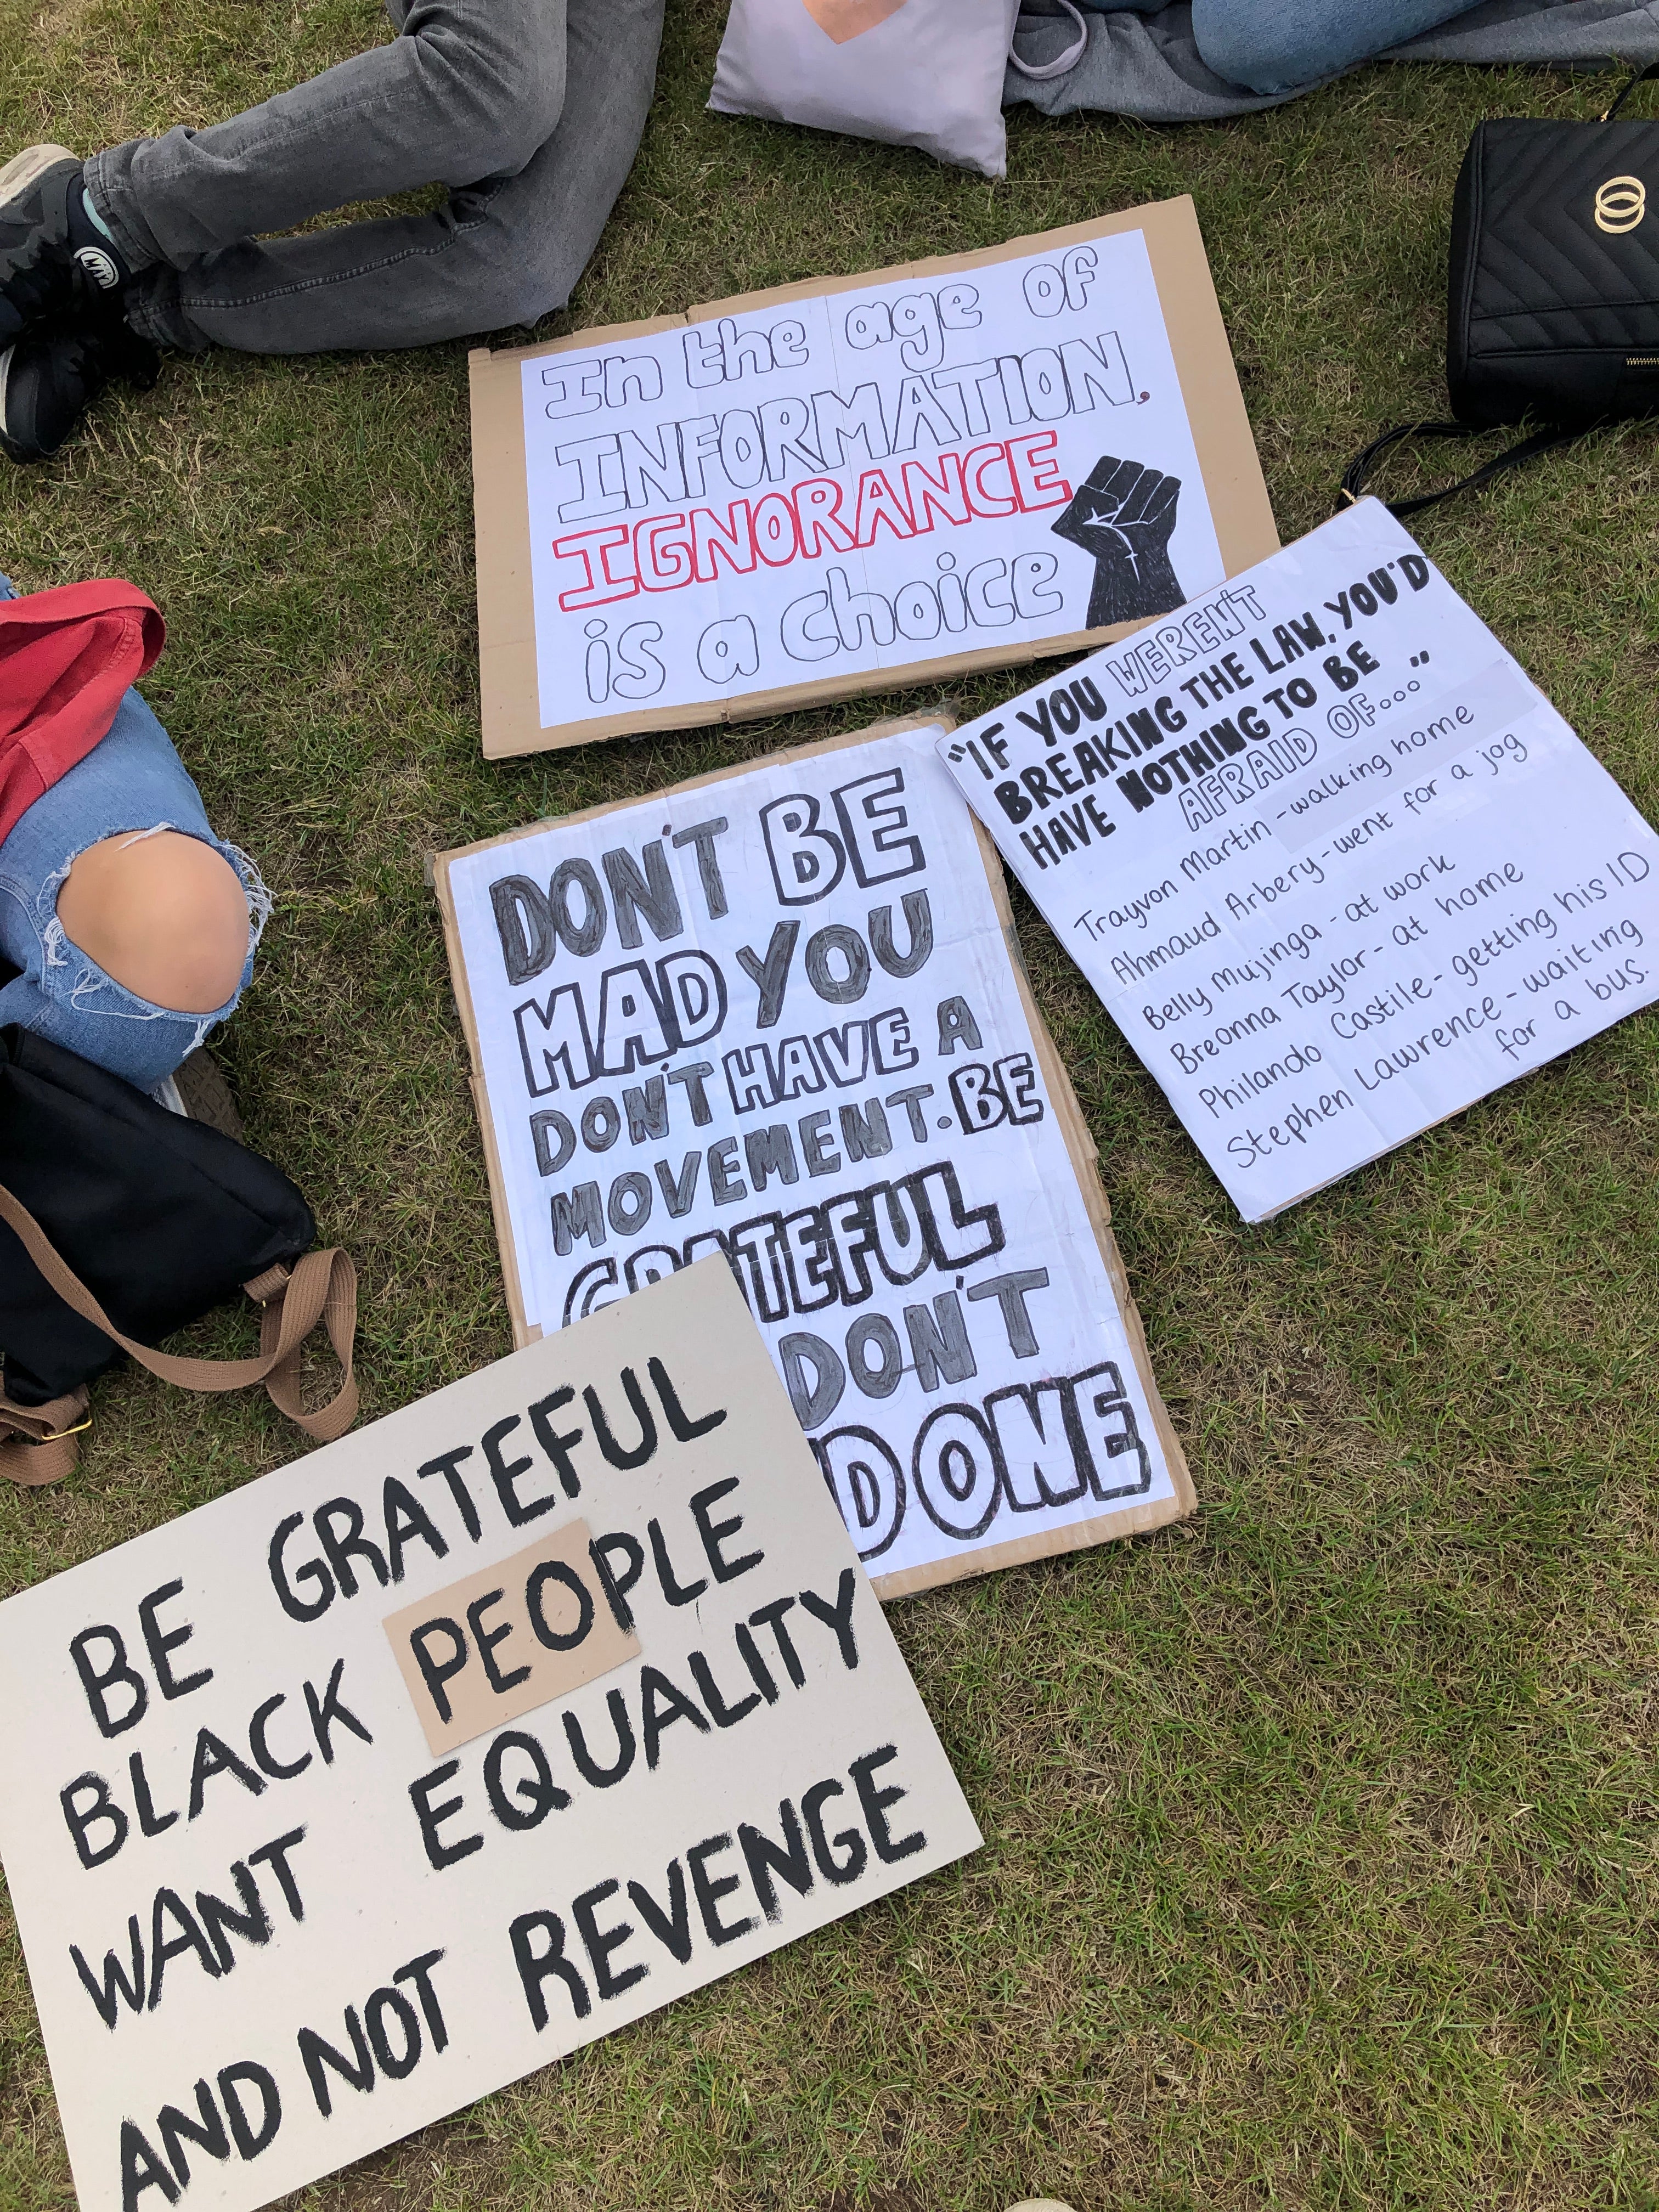 MAX
In the age of
INFORMATION,
IGNORANCE
is a choice
"IF YOU WEREN'T
BREAKING THE LAW, YOU'D
HAVE NOTHING TO BE
AFRAID OF..."
Trayvon Martin - walking home
Ahmaud Arbery - went for a jog
Belly Mujinga - at work
Breonna Taylor - at home
Philando Castile - getting his ID
Stephen Lawrence - waiting
for a bus.
DON'T BE
MAD YOU
DON'T HAVE A
MOVEMENT. BE
GRATEFUL
DON'T
D ONE
BE GRATEFUL
BLACK PEOPLE
WANT EQUALITY
AND NOT REVENGE